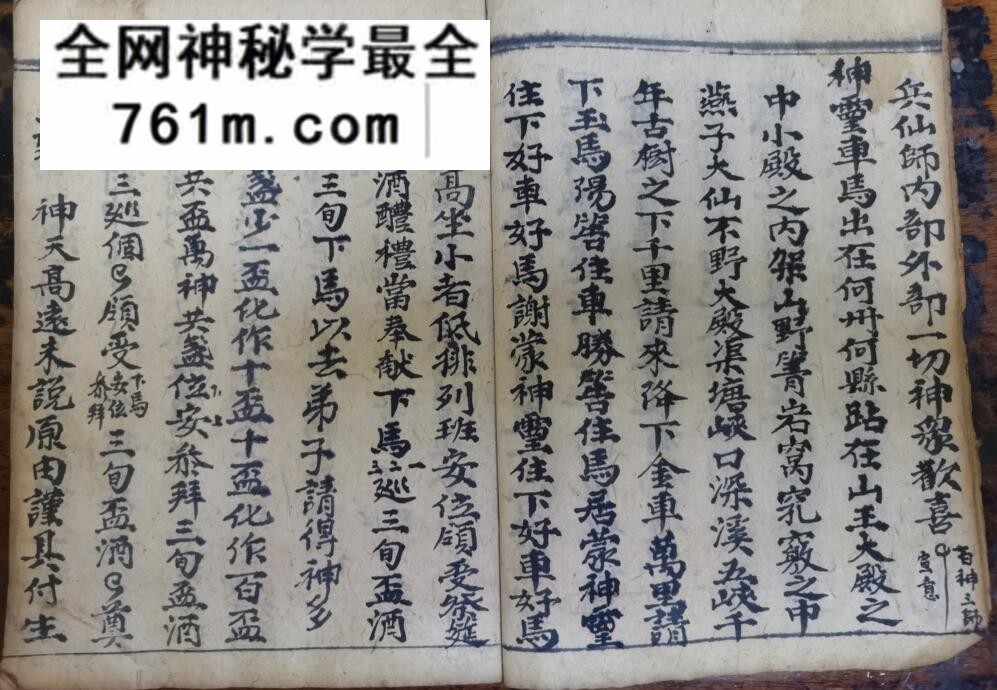 全网神秘学最全
761m.com
兵仙師内部外部一切神眾歡喜
百神三師
宣意
神靈車馬出在何州何縣跕在山王大殿之
中小殿之内架山野箐岩窩窕竅之中
燕子大仙不野大殿渠塘峽口深溪五峽千
年古樹之下千里請來降下金車萬里請
下玉馬陽箐住車勝箐住馬居蒙神靈
住下好車好馬謝蒙神靈住下好車好馬
高坐小者低排列班安位領受祭筵
酒醴禮當奉献下馬一二三巡三旬盃酒
三旬下馬以去弟子請得神多
盞少一盃化作十盃十盃化作百盃
共盃萬神共盞位安叅拜三旬盃酒
三巡個領受
下馬
安位
叅拜
三旬盃酒奠
神天高遠未說原由謹具付生